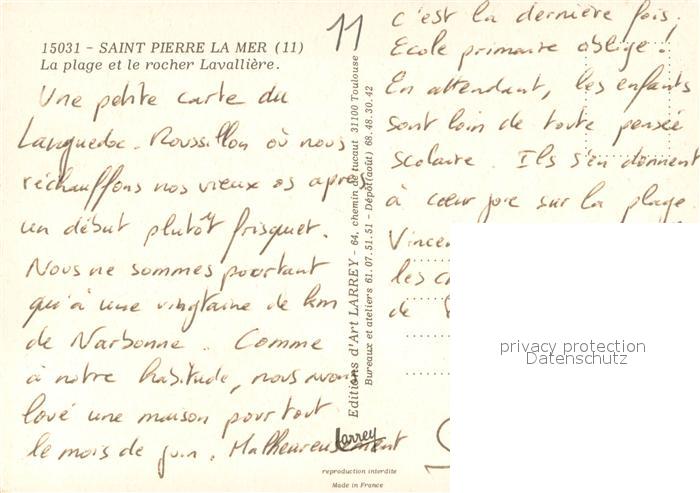 15031 - SAINT PIERRE LA MER (11)
La plage et le rocher Lavallière.
11
Une petite carte du
Languedoc. Roussillon où nous
réchauffons nos vieux os après
un début plutôt frisquet.
Nous ne sommes pourtant
qu'à une vingtaine de km
de Narbonne. Comme
à notre habitude, nous avons
loué une maison pour tout
le mois de juin. Malheureusement
c'est la dernière fois,
Ecole primaire oblige !
En attendant, les enfants
sont loin de toute pensée
scolaire. Ils s'en donnent
à cœur joie sur la plage.
Vincen
les
de
Editions d'Art LARREY - 64, chemin de tucaut 31100 Toulouse
Bureaux et ateliers 61.07.51.51 - Dépôt (août) 68.48.30.42
Larrey
reproduction interdite
Made in France
privacy protection
Datenschutz